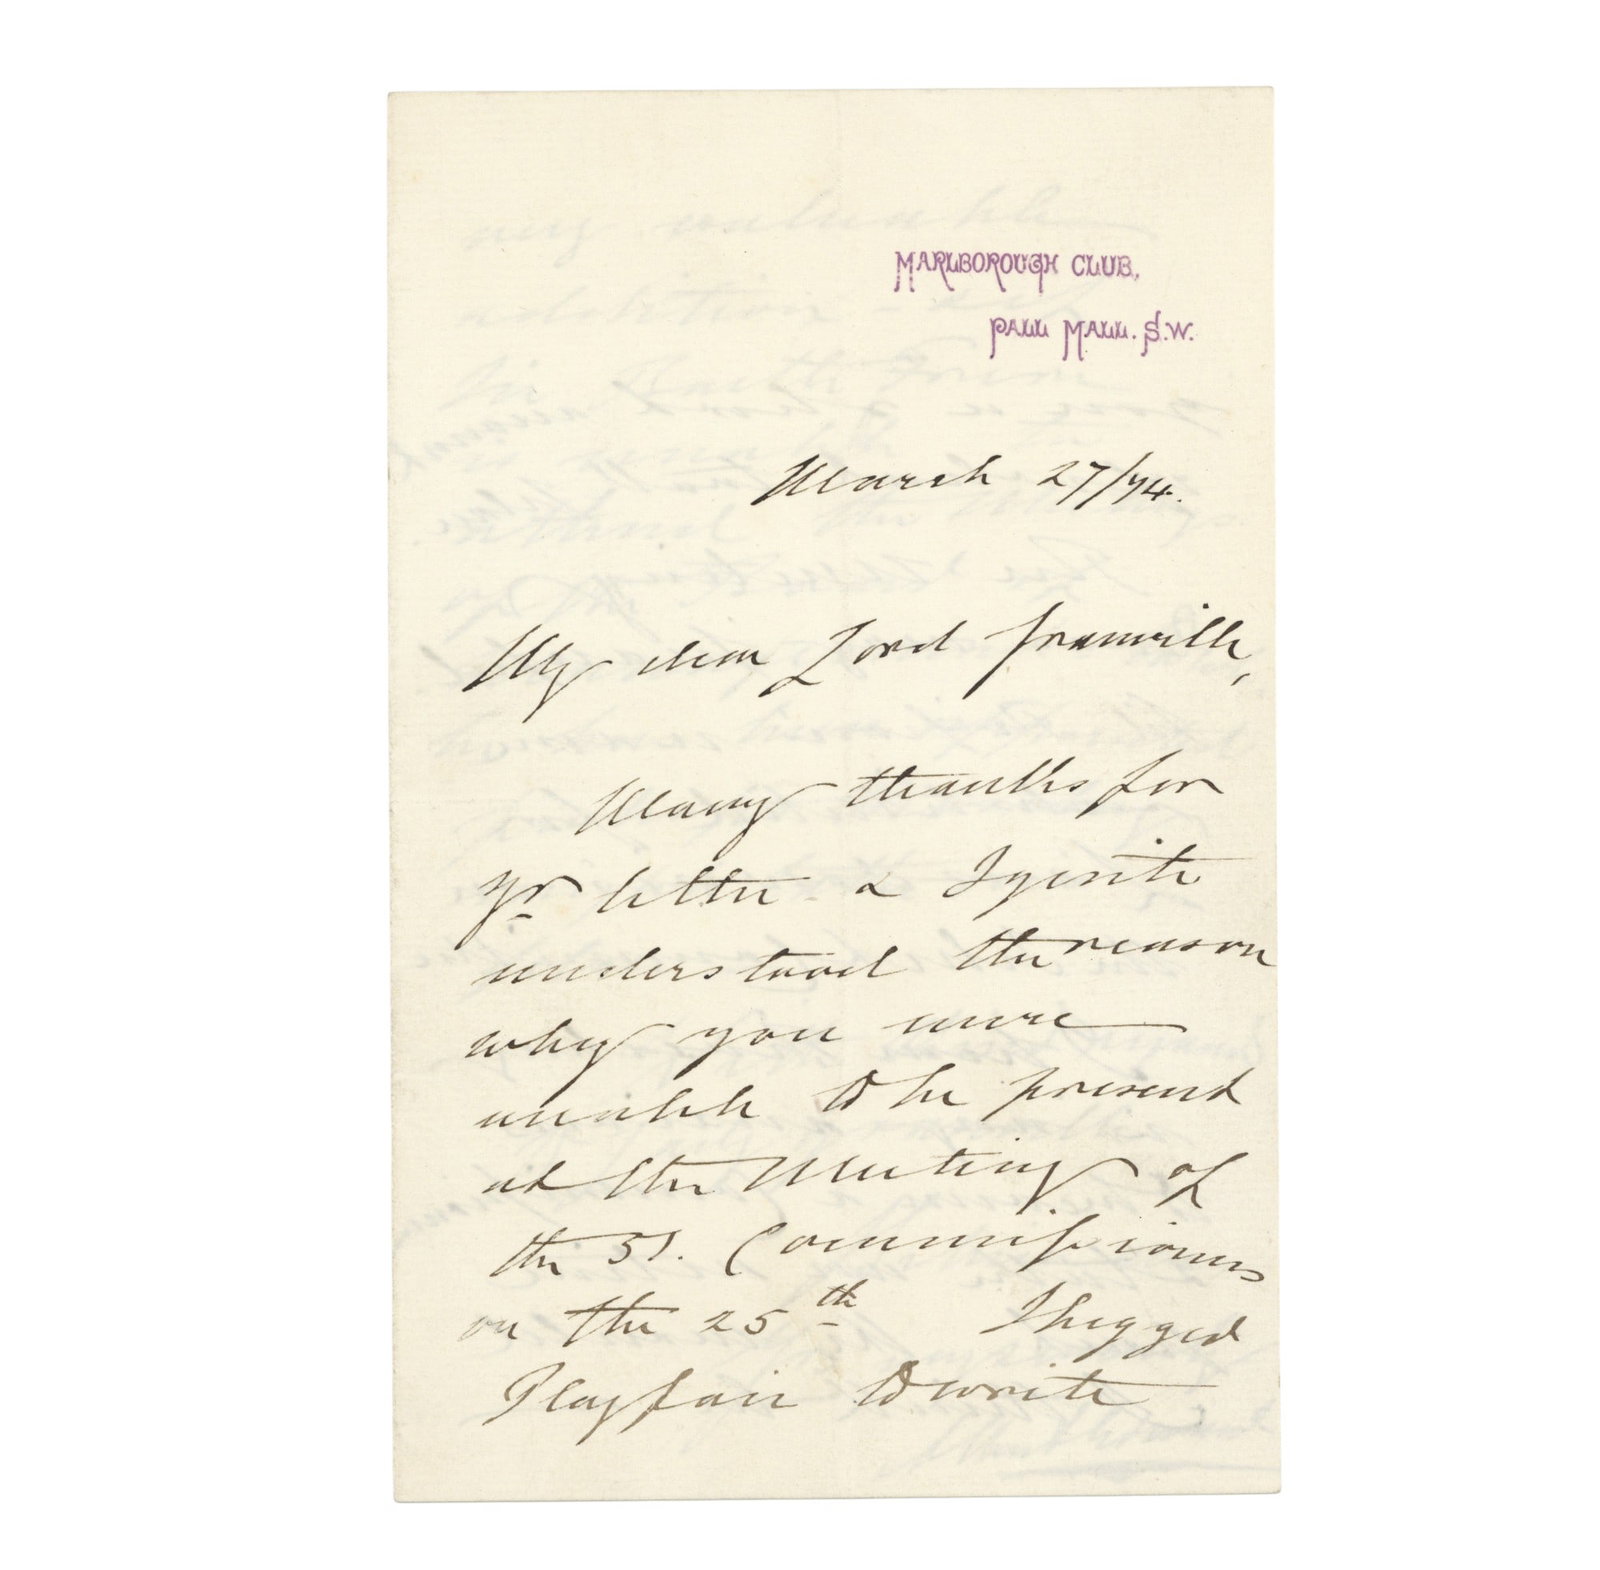 MARLBOROUGH CLUB,
PALL MALL. S.W.
March 27/74.
My dear Lord Granville,
Many thanks for
yr letter & I quite
understood the reason
why you were
unable to be present
at the Meeting of
the 51. Commissioners
on the 25th I begged
Playfair to write